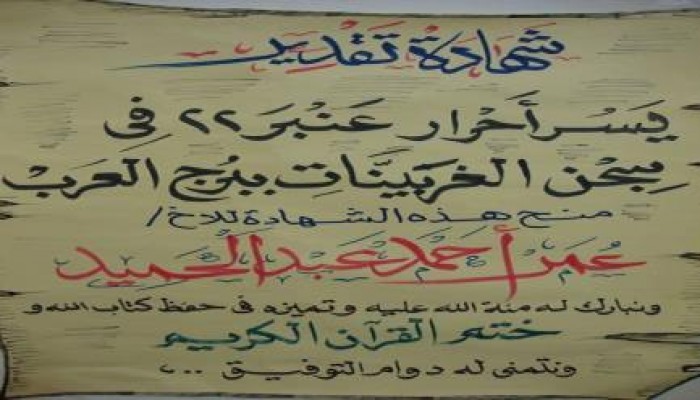 شهادة تقدير
يسر أحرار عنبر ٢٢ فى
سجن الغربينات ببرج العرب
منح هذه الشهادة للاخ /
عمر أحمد عبد الحميد
ونبارك له منة الله عليه وتميزه فى حفظ كتاب الله و
ختم القرآن الكريم
ونتمنى له دوام التوفيق ...